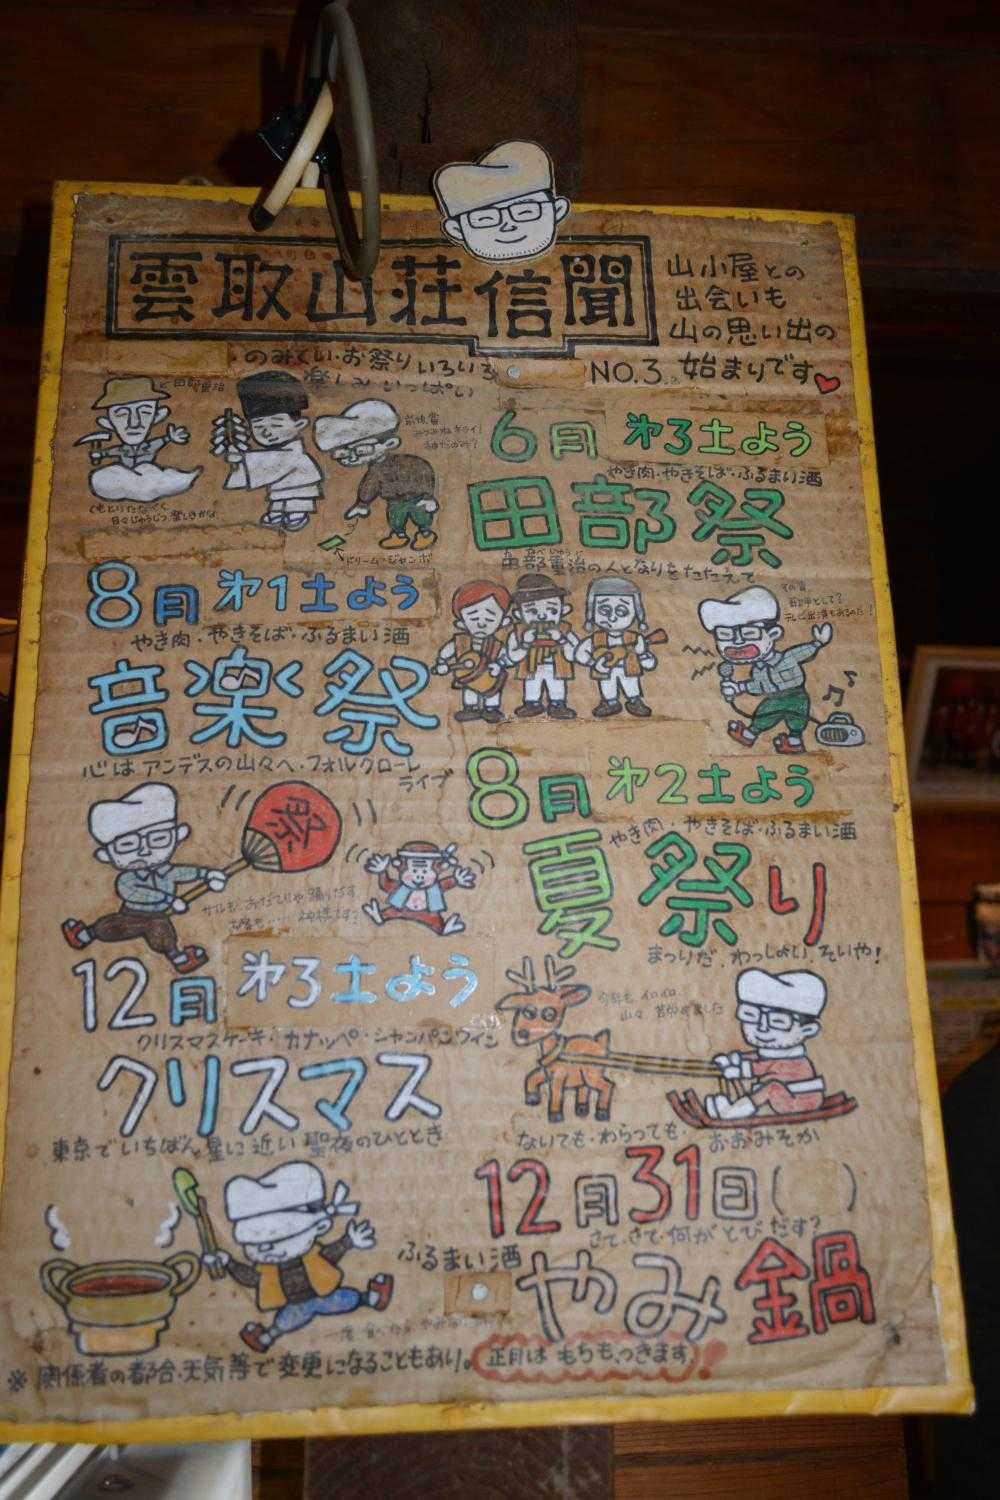 雲取山荘信聞
山小屋との
出会いも
山の思い出の
始まりです
NO.3
のみくい・お祭りいろいろ
楽しみいっぱい
6月 第3土よう
やき肉・やきそば・ふるまい酒
田部祭
田部重治の人となりをたたえて
ドリーム・ジャンボ
8月 第1土よう
やき肉・やきそば・ふるまい酒
音楽祭
心はアンデスの山々へ・フォルクローレ
ライブ
祭
8月 第2土よう
やき肉・やきそば・ふるまい酒
夏祭り
まつりだ、わっしょい、そいや!
12月 第3土よう
クリスマスケーキ・カナッペ・シャンパンワイン
クリスマス
東京でいちばん星に近い聖夜のひととき
ないても・わらっても・おおみそか
12月31日( )
さて、さて、何がとびだす?
ふるまい酒
やみ鍋
※関係者の都合・天気等で変更になることもあり。
正月はもちもつきます!